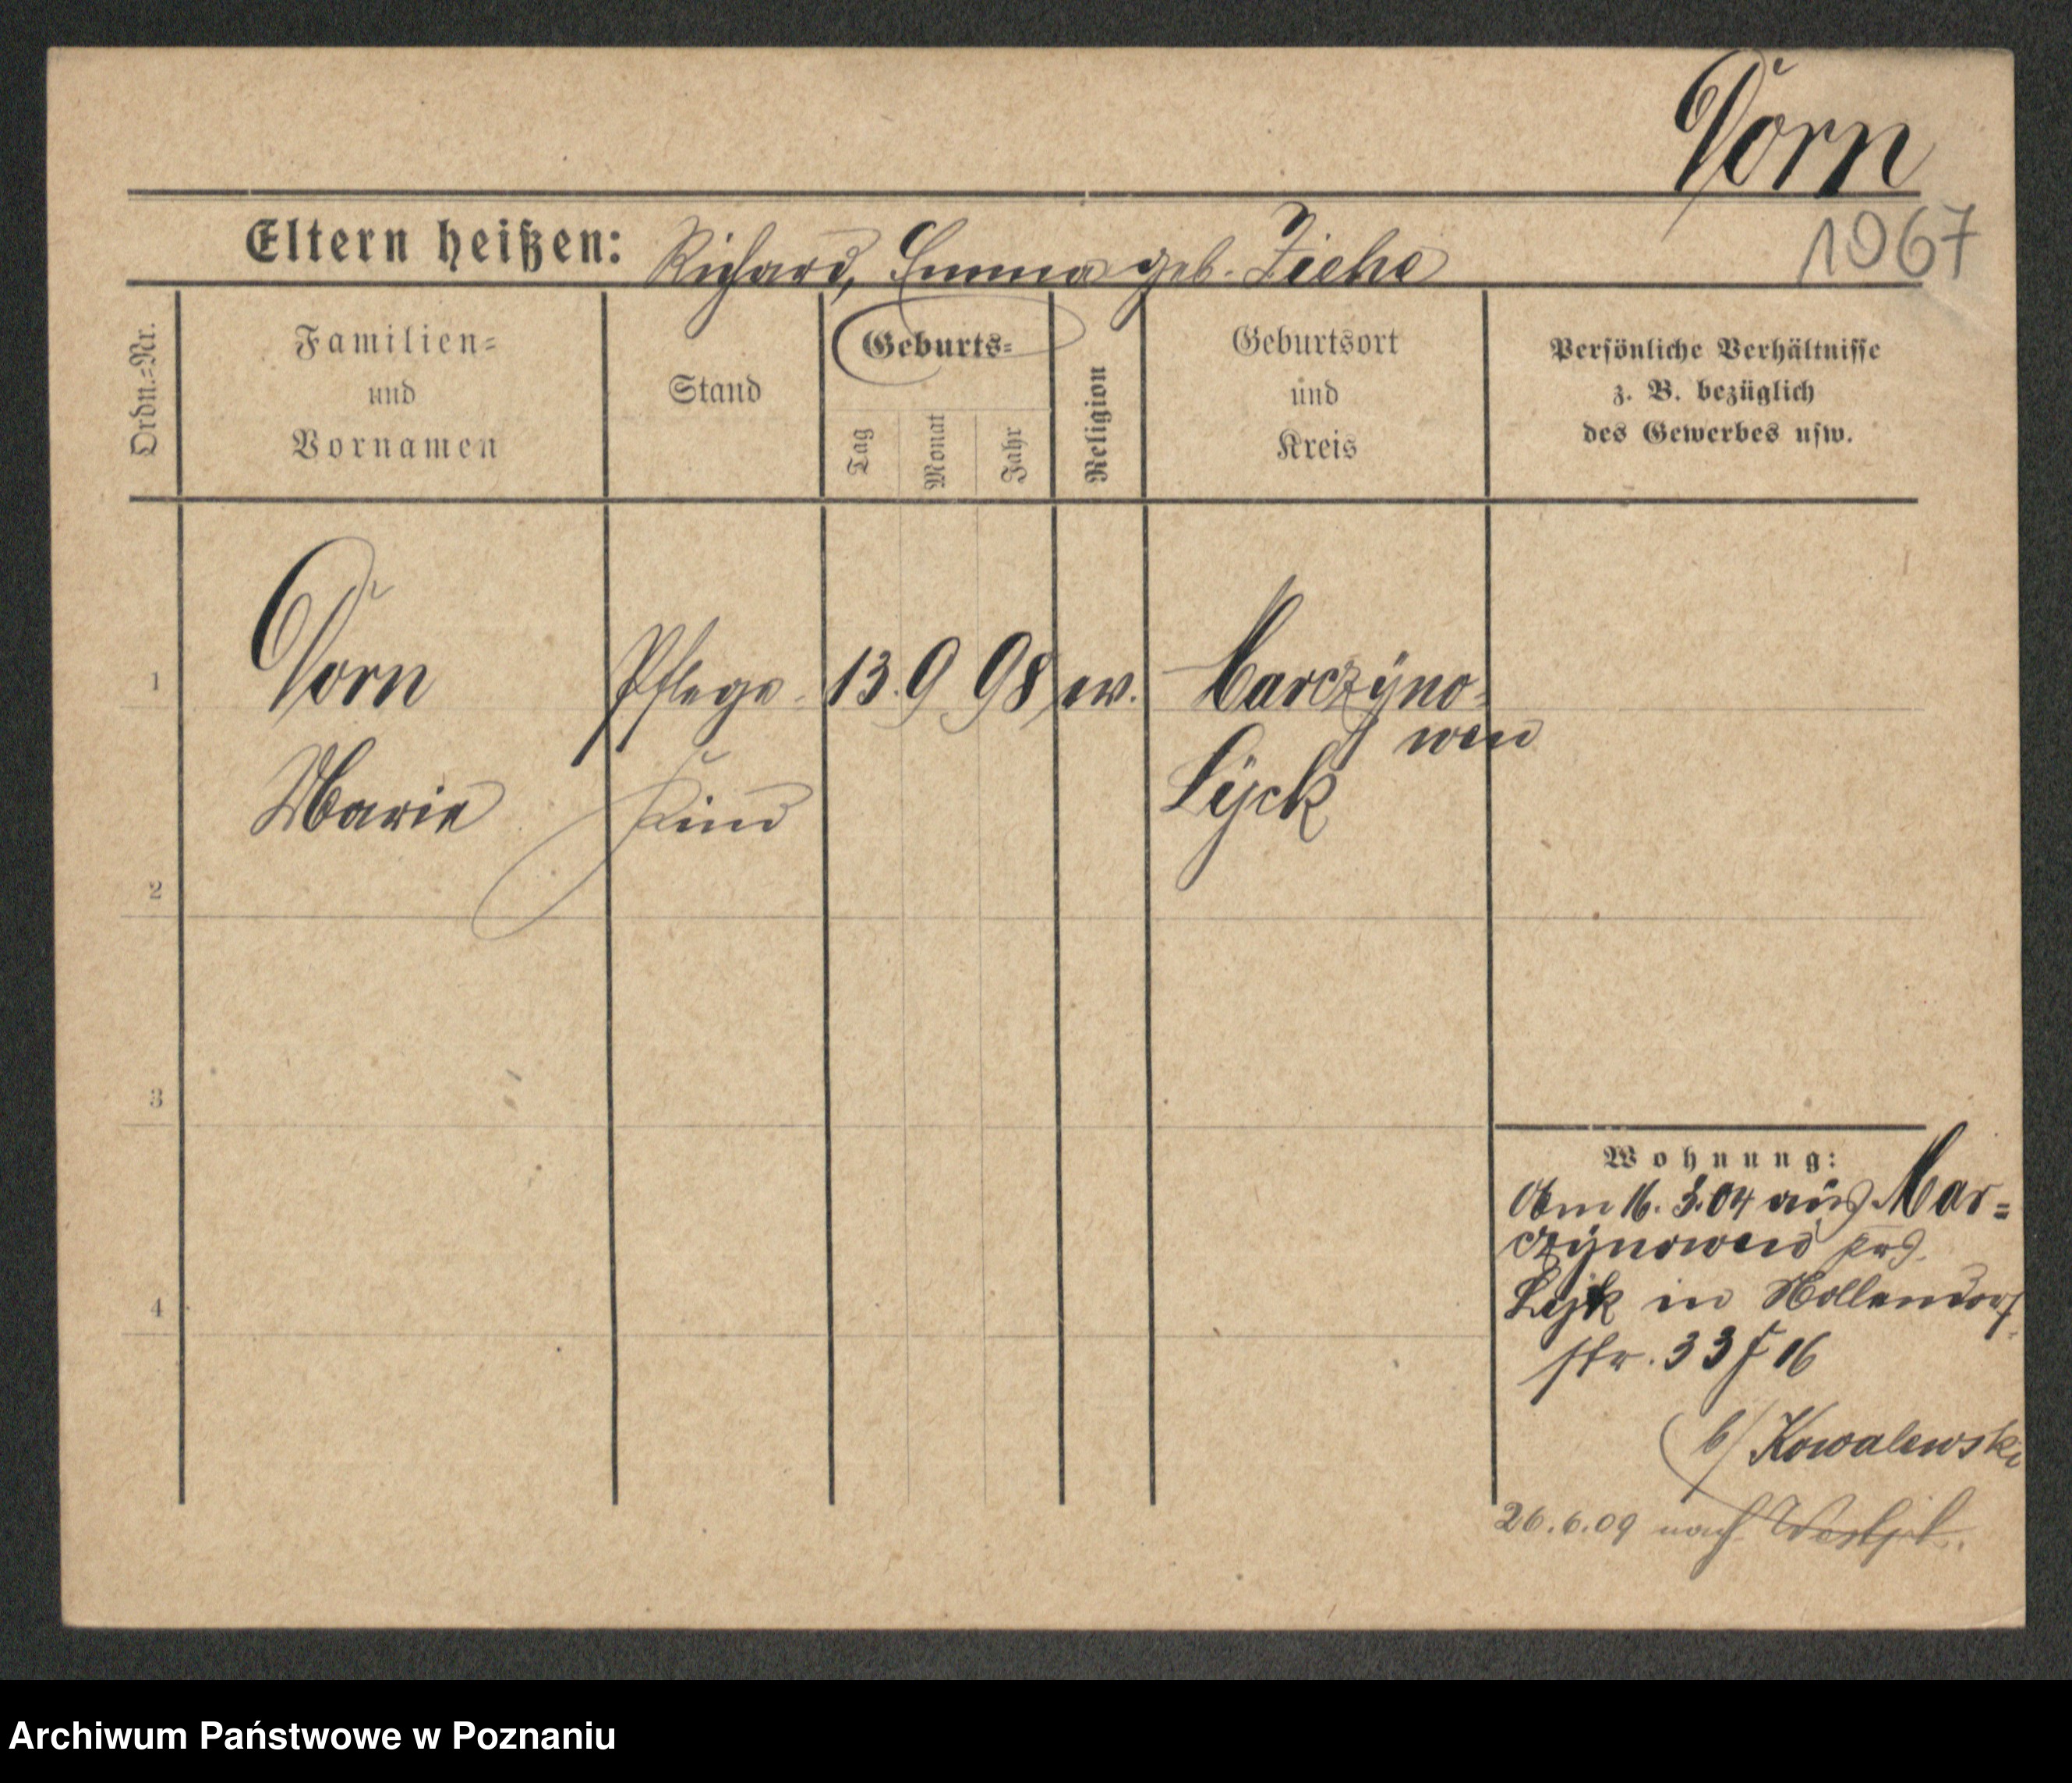 Dorn
1067
Eltern heißen: Richard, Emma geb. Ziehe
Ordn.=Nr.
Familien=
und
Vornamen
Stand
Geburts=
Tag
Monat
Jahr
Religion
Geburtsort
und
Kreis
Persönliche Verhältnisse
z. B. bezüglich
des Gewerbes usw.
1
Dorn
Pflege-
13.
9
98
ev.
Marczÿno-
wen
Marie
Kind
Lÿck
2
3
4
Wohnung:
Am 16. 3. 04 aus Mar=
czÿnowen
Lÿk in Nollendorf
str. 33 I 16
b/ Kowalewski
26.6.09 nach
Archiwum Państwowe w Poznaniu